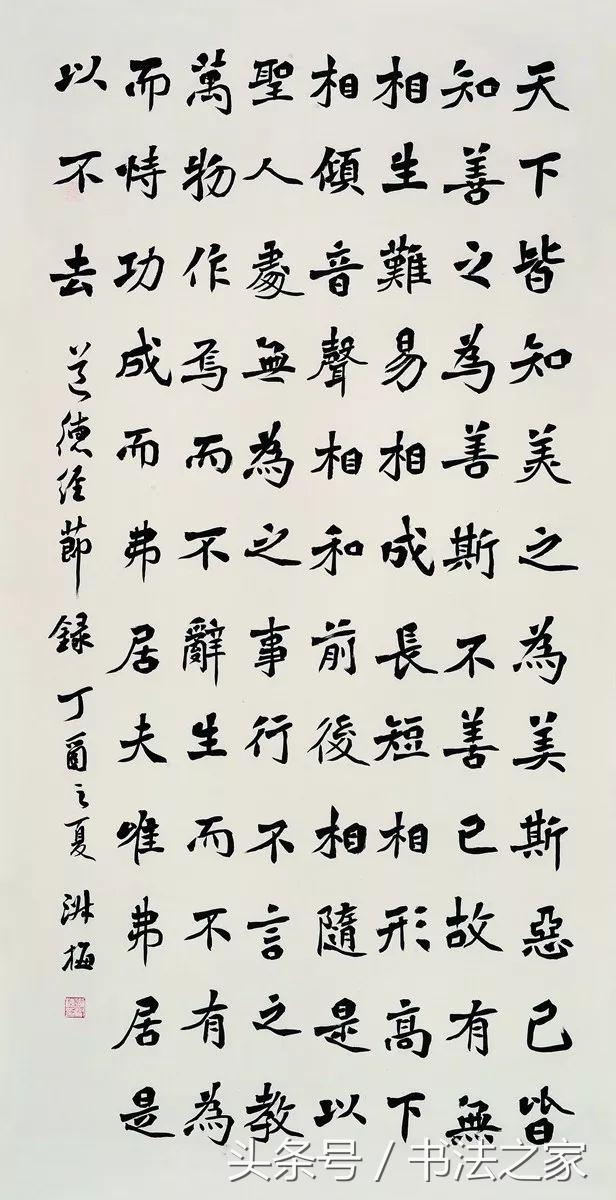 天下皆知美之為美斯惡已皆
知善之為善斯不善已故有無
相生難易相成長短相形高下
相傾音聲相和前後相隨是以
聖人處無為之事行不言之教
萬物作焉而不辭生而不有為
而恃功成而弗居夫唯弗居是
以不去 道德經節録 丁酉之夏 梅
头条号 / 书法之家